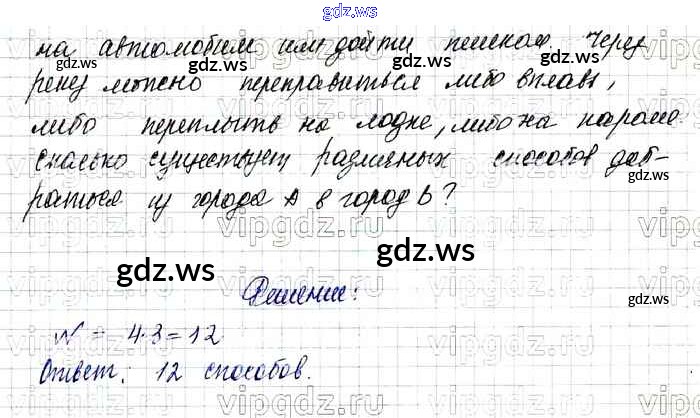 gdz.ws
на автомобили или дойти пешком. Через
реку можно переправиться либо вплавь,
либо переплыть на лодке, либо на пароме
сколько существует различных способов доб-
раться из города A в город b?
gdz.ws gdz.ws
Решение:
N = 4·3=12
Ответ: 12 способов.
gdz.ws gdz.ws